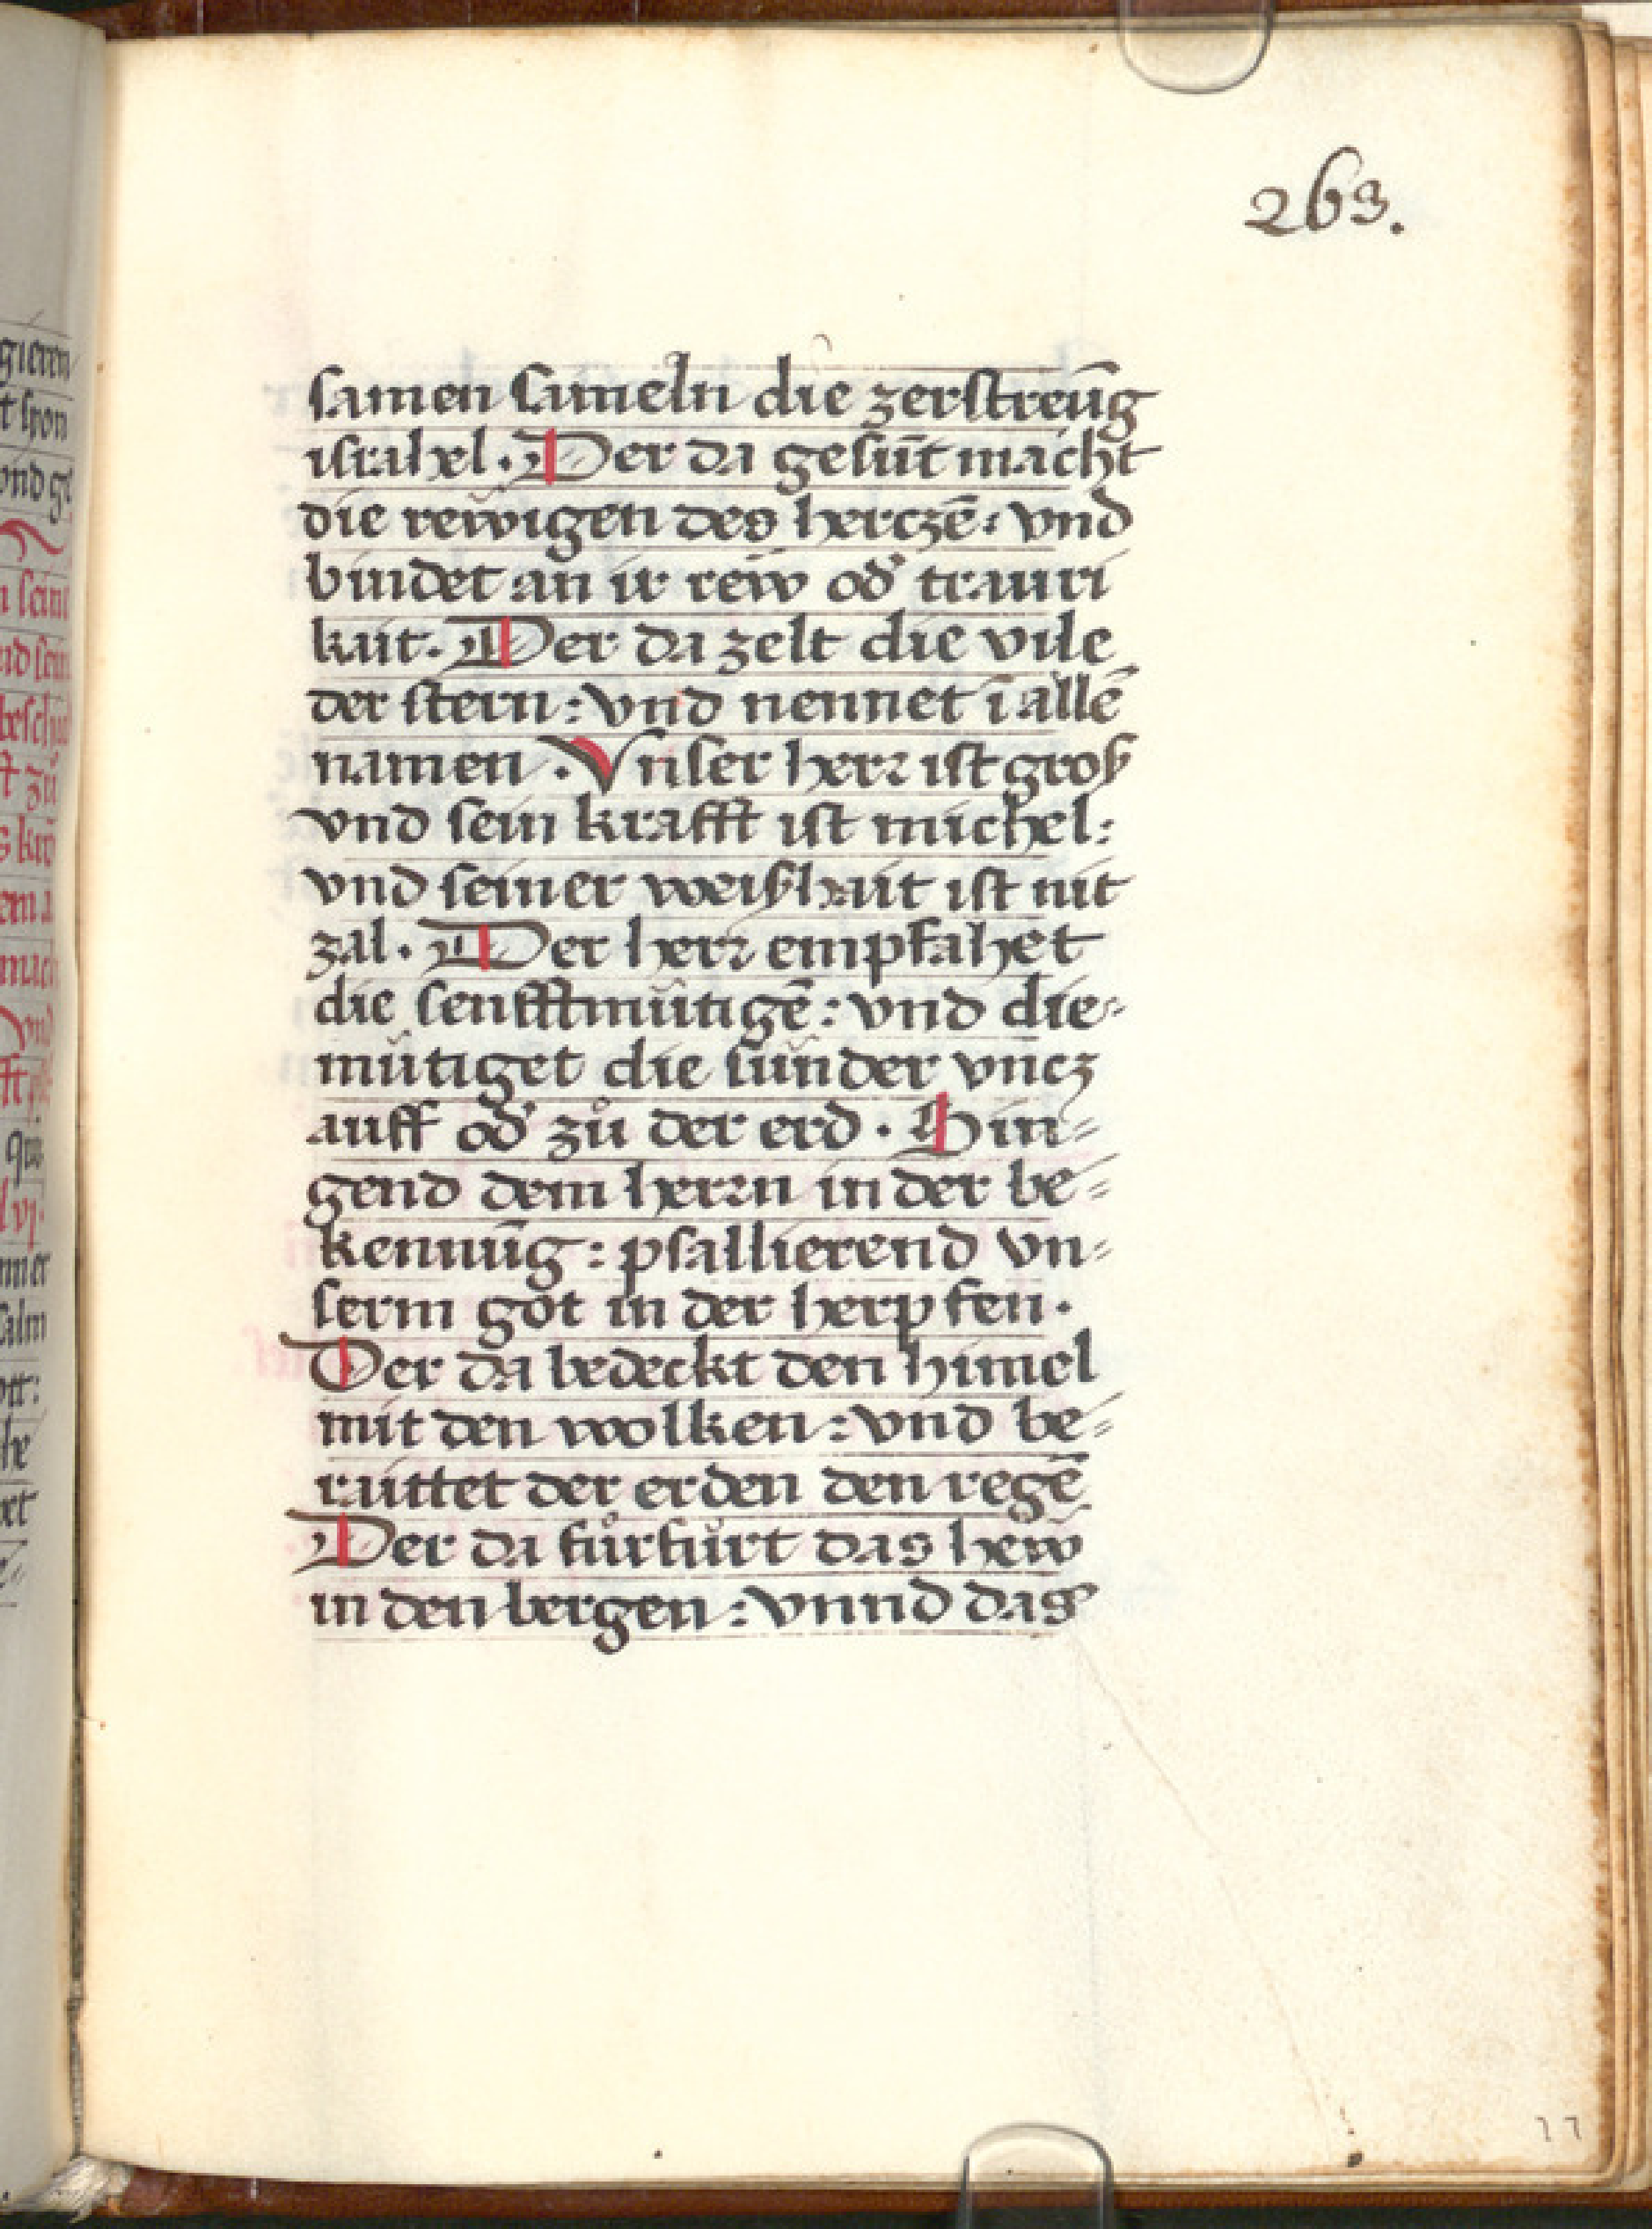 263.
samen sameln die zerstreūg
israhel. Der da gesūt macht
die rewigen des herczē: vnd
bindet an ir rew od' trauri
kait. Der da zelt die vile
der stern: vnd nennet ī allē
namen. Vnser herr ist groß
vnd sein krafft ist michel:
vnd seiner weißhait ist nit
zal. Der herr empfahet
die senfftmütigē: vnd die-
mütiget die sünder vncz
auff od' zů der erd. Sin=
gend dem herrn in der be=
kennūg: psallierend vn=
serm got in der herpfen.
Der da bedeckt den himel
mit den wolken: vnd be=
raittet der erden den regē
Der da fůrfůrt das hew
in den bergen: vnnd das